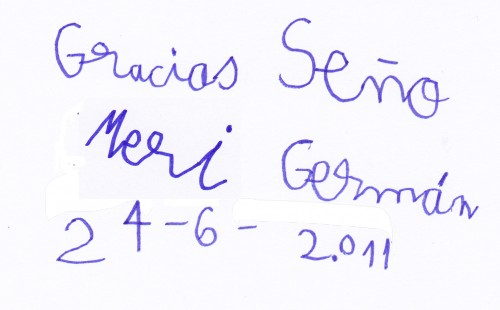 Gracias Seño
Meri Germán
24-6-2.011